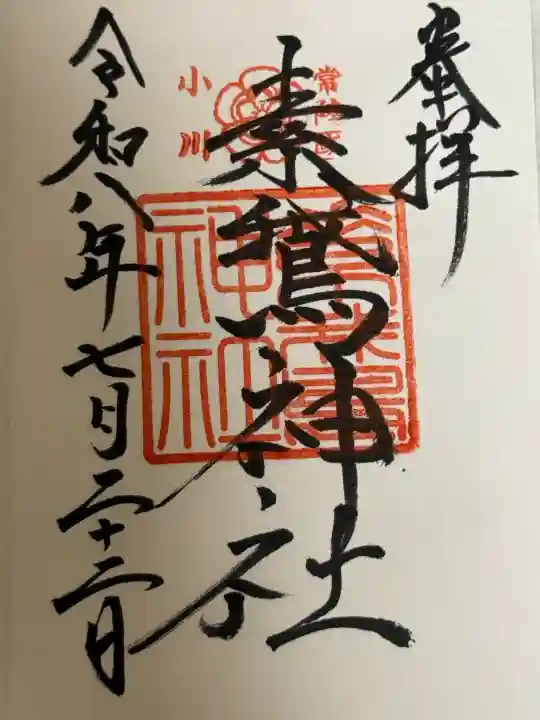 奉拝
常陸國
素鵞神社
小川
素鵞神社
令和八年七月二十二日